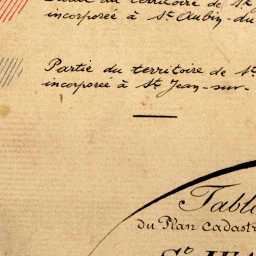 du territoire de St
incorporée à St Aubin-du
Partie du territoire de St
incorporée à St Jean-sur-
Table
du Plan cadast
St